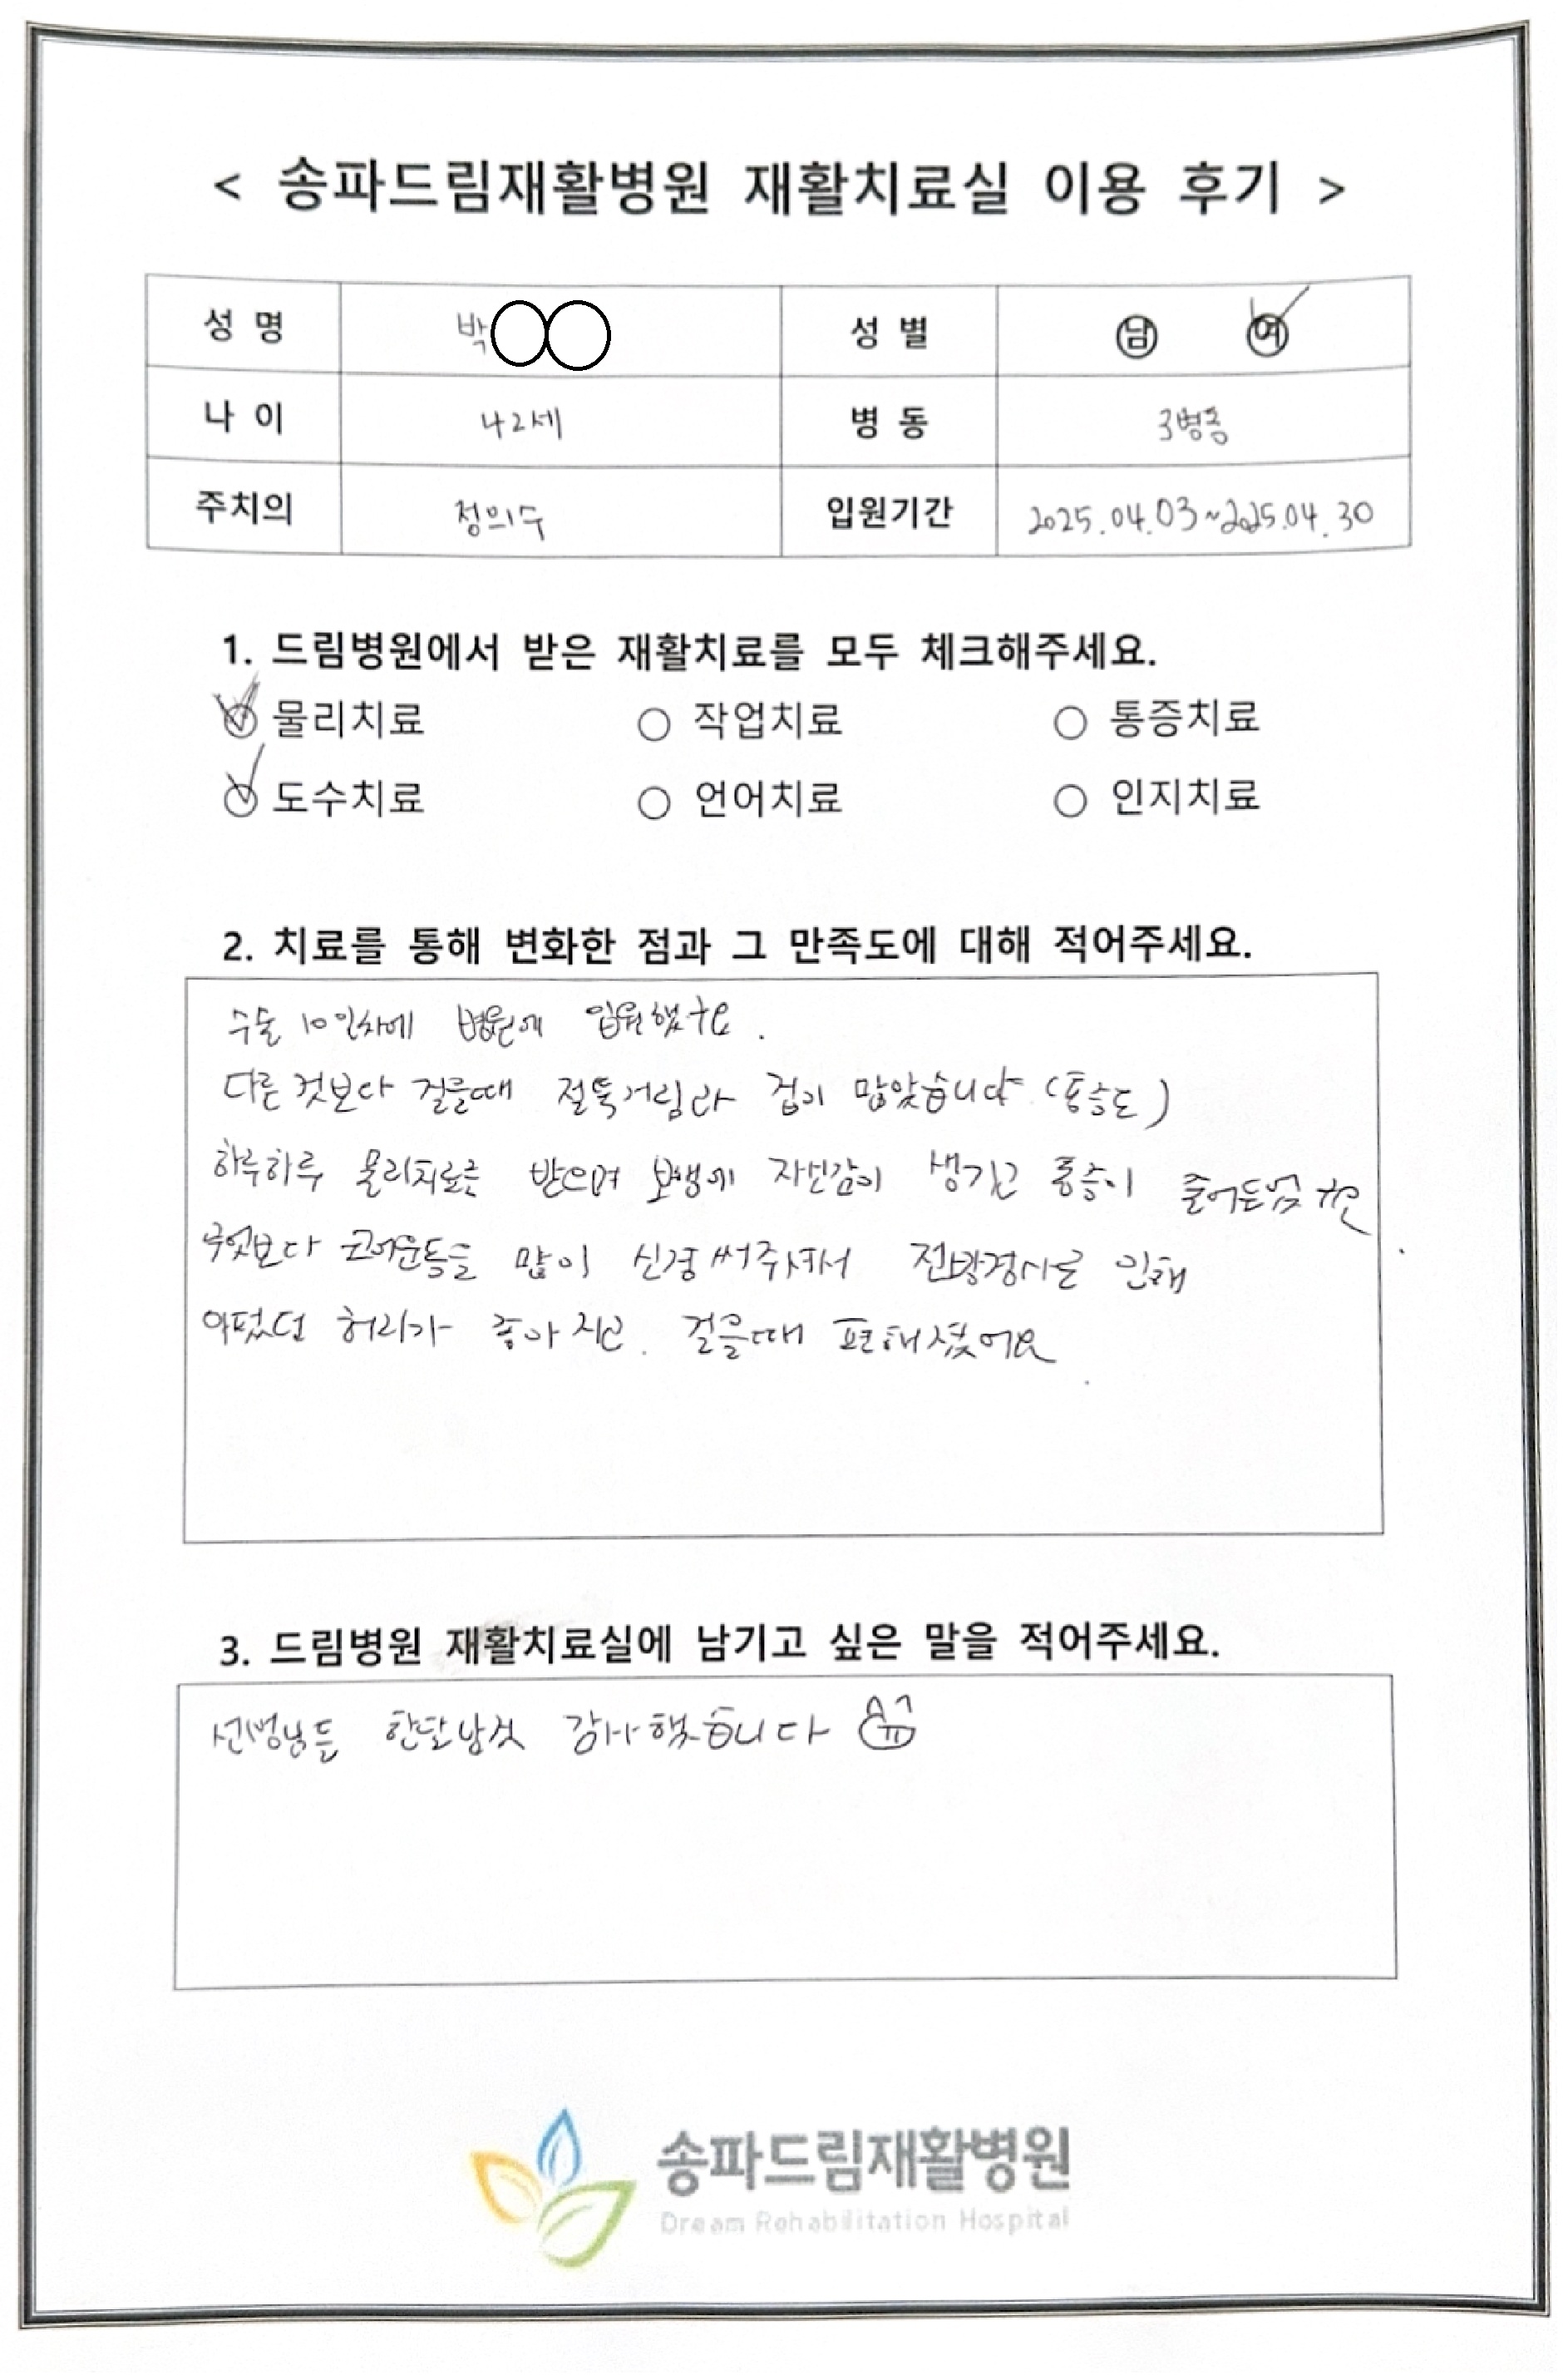 < 송파드림재활병원 재활치료실 이용 후기 >
성 명 박○○ 성 별 남 여
나 이 42세 병 동 3병동
주치의 정의수 입원기간 2025.04.03~2025.04.30
1. 드림병원에서 받은 재활치료를 모두 체크해주세요.
물리치료 작업치료 통증치료
도수치료 언어치료 인지치료
2. 치료를 통해 변화한 점과 그 만족도에 대해 적어주세요.
수술 10일차에 병원에 입원했구요.
다른 것보다 걸을때 절뚝거림과 겁이 많았습니다 (통증도)
하루하루 물리치료를 받으며 보행에 자신감이 생기고 통증이 줄어든넜구요.
무엇보다 코어운동을 많이 신경써주셔서 전방경사로 인해
아팠던 허리가 좋아지고. 걸을때 편해졌어요.
3. 드림병원 재활치료실에 남기고 싶은 말을 적어주세요.
선생님들 한달남짓 감사했습니다
송파드림재활병원
Dream Rehabilitation Hospital